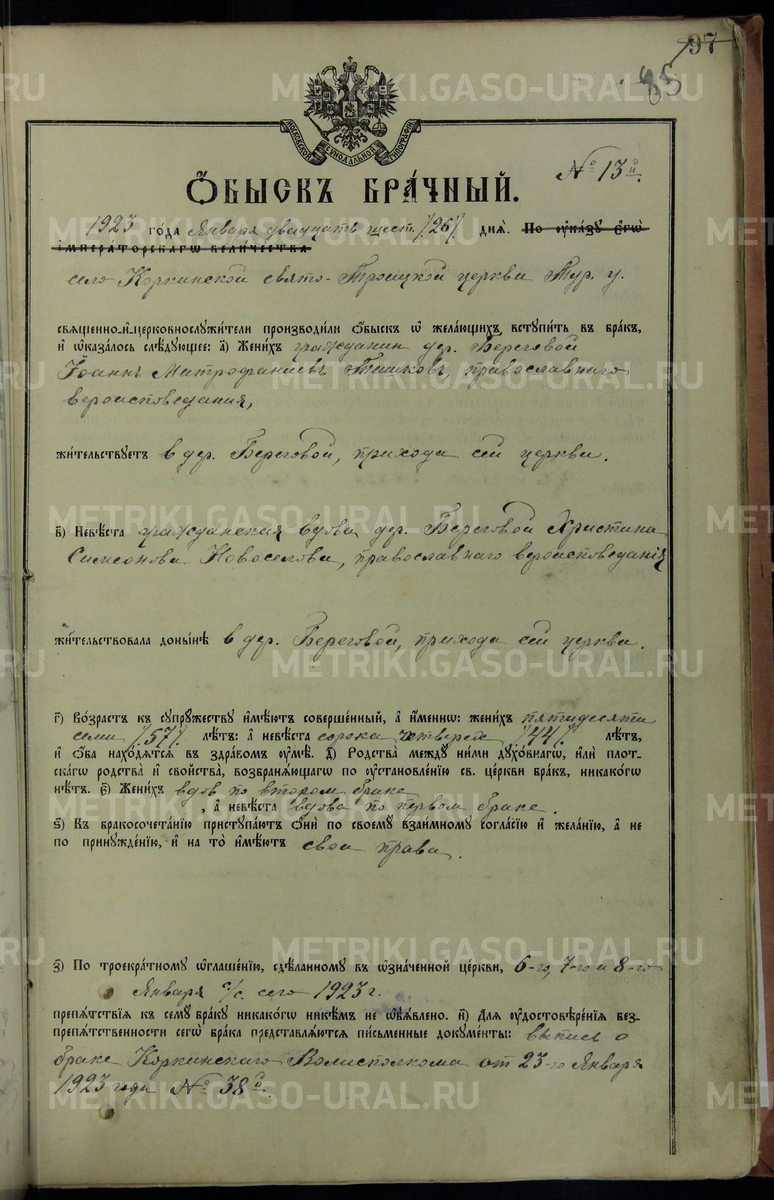 97
85
МОСКОВСКОЙ СѴНОДАЛЬНОЙ ТИПОГРАФІИ
№ 13й.
Ѻ҆БЫСКЪ БРА́ЧНЫЙ.
1923 го́да Января двадцать шест. /26/. днѧ̀. По ᲂу҆ка́зꙋ є҆гѡ̀
і҆мпера́торскагѡ вели́чества
село Коркинской свято-Троицкой церкви Тур. у.
свѧще́нно-и҆-церковнослꙋжи́тели производи́ли ѻ҆́быскъ ѡ҆ жела́ющихъ вступи́ть въ бра́къ,
и҆ ѡ҆каза́лось слѣ́дꙋющее: а҃) Жени́хъ гражданин дер. Береговой
Іоаннъ Митрофаниевъ Тишковъ, православнаго
вероисповедания,
жи́тельствꙋетъ в дер. Береговой, прихода сей церкви.
в҃) Невѣ́ста гражданская вдова дер. Береговой Христина
Симеонова Новоселова, православнаго вероисповедания
жи́тельствовала доны́нѣ в дер. Береговой, прихода сей церкви.
г҃) Во́зрастъ къ сꙋпрꙋ́жествꙋ и҆мѣ́ютъ соверше́нный, а҆ и҆́меннѡ: жени́хъ пятидесяти
семи /57/. лѣ́тъ: а҆ невѣ́ста сорока четверех /44/. лѣ́тъ,
и҆ ѻ҆́ба нахо́дѧтсѧ въ здра́вомъ ᲂу҆мѣ̀. д҃) Родства̀ междꙋ ни́ми дꙋхо́внагѡ, и҆лѝ пло́т-
скагѡ родства̀ и҆ сво́йства, возбранѧ́ющагѡ по ᲂу҆становле́нїю св. це́ркви бра́къ, никако́гѡ
нѣ́тъ. є҃) Жени́хъ вдов по втором браке
, а҆ невѣ́ста вдова по первом браке.
ѕ҃) Къ бракосочета́нїю пристꙋпа́ютъ ѻ҆нѝ по своемꙋ̀ взаи́мномꙋ согла́сїю и҆ жела́нїю, а҆ не
по принꙋжде́нїю, и҆ на то̀ и҆мѣ́ютъ свои права.
з҃) По троекра́тномꙋ ѡ҆глаше́нїю, сдѣ́ланномꙋ въ ѡ҆зна́ченной це́ркви, 6-го, 7-го и 8-го
Января с/с. сего 1923 г.
препѧ́тствїѧ къ семꙋ̀ бра́кꙋ никако́гѡ никѣ́мъ не ѡ҆б̾ѧ́влено. и҃) Длѧ̀ ᲂу҆достовѣре́нїѧ без-
препѧ́тственности сегѡ̀ бра́ка представлѧ́ютсѧ пи́сьменные докꙋме́нты: выпись о
браке Коркинскаго Волисполкома от 23-го Января
1923 года № 38й.
METRIKI.GASO-URAL.RU